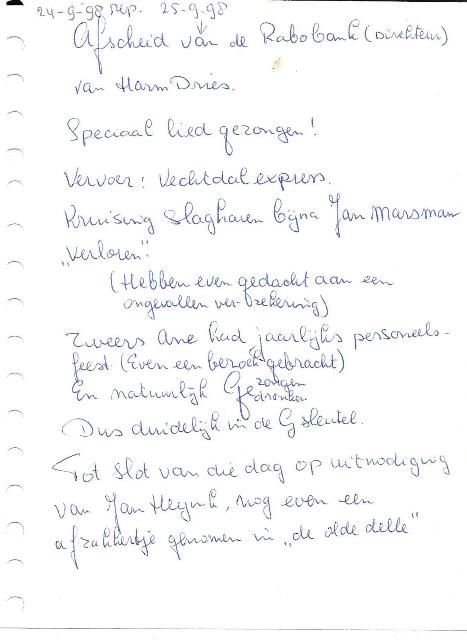 24-9-98 rep. 25-9-98
Afscheid van de Rabobank (Direkteur)
van Harm Dries.
Speciaal lied gezongen!
Vervoer: Vechtdal express.
Kruising Slagharen bijna Jan Marsman
"Verloren".
(Hebben even gedacht aan een
ongevallen ver-zekering)
Zweers Ane had jaarlijks personeels-
feest. (Even een bezoek gebracht)
En natuurlijk Gezongen
Gedronken.
Dus duidelijk in de G sleutel.
Tot slot van die dag op uitnodiging
van Jan Heynk, nog even een
afzakkertje genomen in "de olde delle"